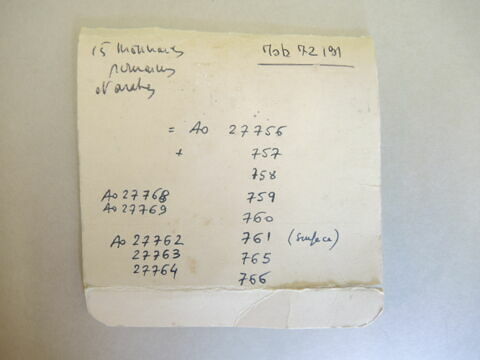 15 monnaies
romaines
et arabes
Mob 72 191
= Ao 27756
+ 757
758
Ao 27768 759
Ao 27769
760
Ao 27762 761 (surface)
27763 765
27764 766